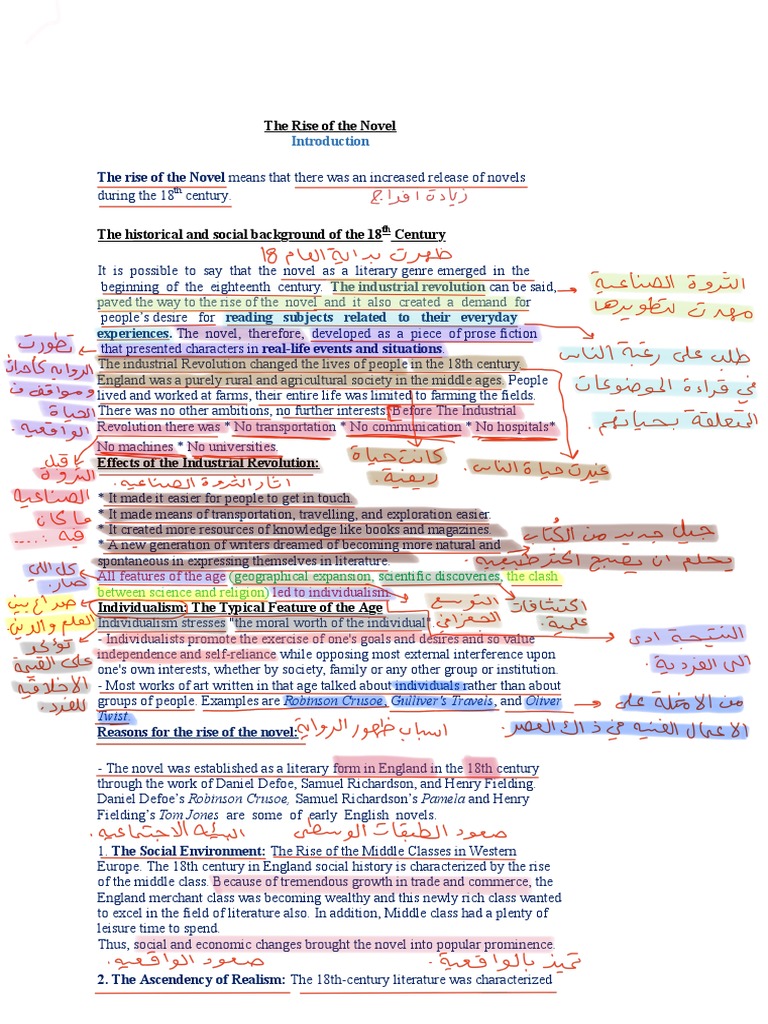 The Rise of the Novel
Introduction
The rise of the Novel means that there was an increased release of novels
during the 18th century.
زيادة افراج
The historical and social background of the 18th Century
ظهرت بداية العام 18
It is possible to say that the novel as a literary genre emerged in the
beginning of the eighteenth century. The industrial revolution can be said,
paved the way to the rise of the novel and it also created a demand for
people's desire for reading subjects related to their everyday
experiences. The novel, therefore, developed as a piece of prose fiction
that presented characters in real-life events and situations.
الثروة الصناعية
مهدت لتطويرها
طلب على رغبة الناس
في قراءة الموضوعات
المتعلقة بحياتهم.
تطورت
الرواية كأحداث
ومواقف
الحياة
الواقعية
The industrial Revolution changed the lives of people in the 18th century.
England was a purely rural and agricultural society in the middle ages. People
lived and worked at farms, their entire life was limited to farming the fields.
There was no other ambitions, no further interests. Before The Industrial
Revolution there was * No transportation * No communication * No hospitals*
No machines * No universities.
كانت حياة
ريفية.
غيرت حياة الناس.
قبل
الثروة
الصناعية
ما كان
فيه :....
Effects of the Industrial Revolution:
اثار الثروة الصناعية.
* It made it easier for people to get in touch.
* It made means of transportation, travelling, and exploration easier.
* It created more resources of knowledge like books and magazines.
* A new generation of writers dreamed of becoming more natural and
spontaneous in expressing themselves in literature.
جيل جديد من الكُتاب
يحلم ان يصبح اكثر طبيعية
All features of the age (geographical expansion, scientific discoveries, the clash
between science and religion) led to individualism.
كل اللي
صار
صراع بين
العلم والدين.
التوسع
الجغرافي
اكتشافات
علمية.
Individualism: The Typical Feature of the Age
Individualism stresses "the moral worth of the individual".
تؤكد
على القيمة
الاخلاقية
للفرد.
- Individualists promote the exercise of one's goals and desires and so value
independence and self-reliance while opposing most external interference upon
one's own interests, whether by society, family or any other group or institution.
النتيجة ادى
الى الفردية.
- Most works of art written in that age talked about individuals rather than about
groups of people. Examples are Robinson Crusoe, Gulliver's Travels, and Oliver
Twist.
من الامثلة على
الاعمال الفنية في ذاك العصر.
Reasons for the rise of the novel:
اسباب ظهور الرواية
- The novel was established as a literary form in England in the 18th century
through the work of Daniel Defoe, Samuel Richardson, and Henry Fielding.
Daniel Defoe's Robinson Crusoe, Samuel Richardson's Pamela and Henry
Fielding's Tom Jones are some of early English novels.
صعود الطبقات الوسطى
البيئة الاجتماعية.
1. The Social Environment: The Rise of the Middle Classes in Western
Europe. The 18th century in England social history is characterized by the rise
of the middle class. Because of tremendous growth in trade and commerce, the
England merchant class was becoming wealthy and this newly rich class wanted
to excel in the field of literature also. In addition, Middle class had a plenty of
leisure time to spend.
Thus, social and economic changes brought the novel into popular prominence.
صعود الواقعية.
تميز بالواقعية.
2. The Ascendency of Realism: The 18th-century literature was characterized